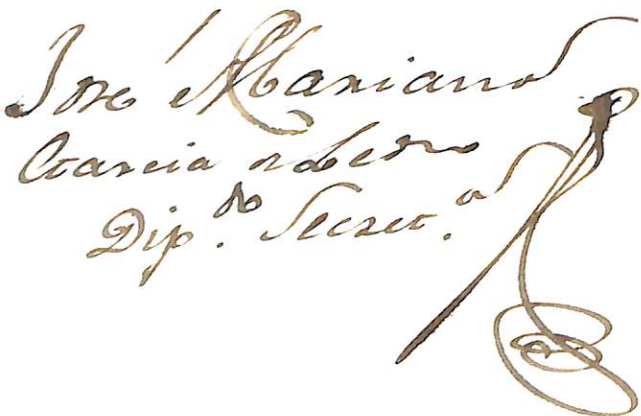 Jose Mariano
Garcia
Dip.do Secret.o